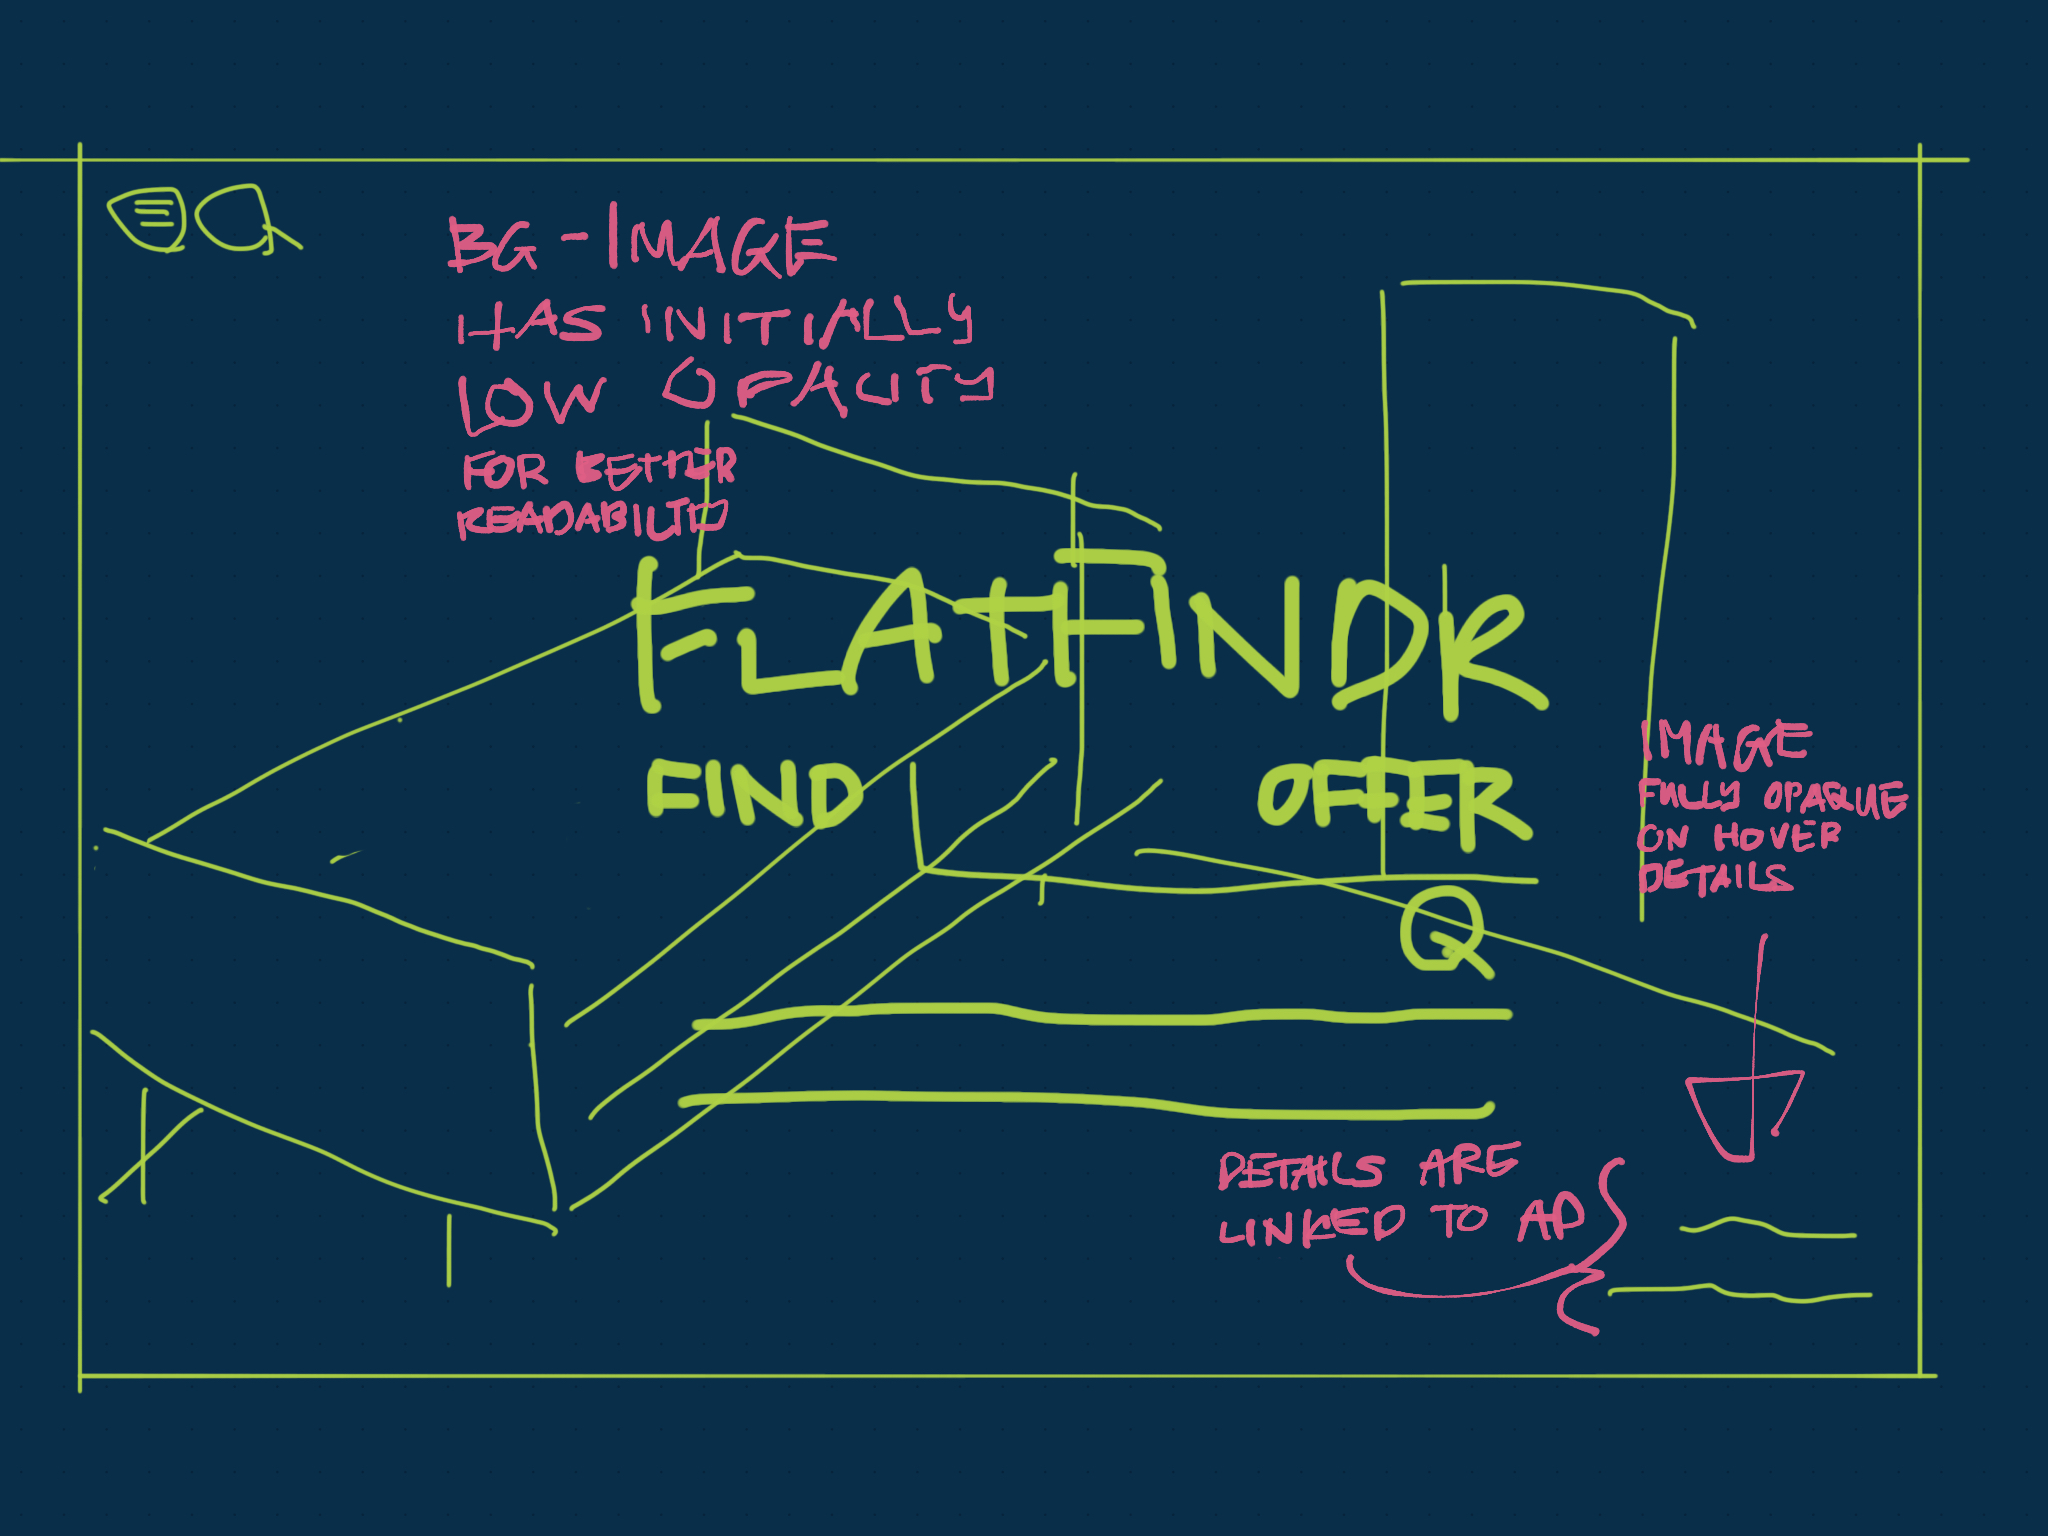 BG-IMAGE
HAS INITIALLY
LOW OPACITY
FOR BETTER
READABILITY
FLATFINDR
FIND OFFER
IMAGE
FULLY OPAQUE
ON HOVER
DETAILS
DETAILS ARE
LINKED TO AD